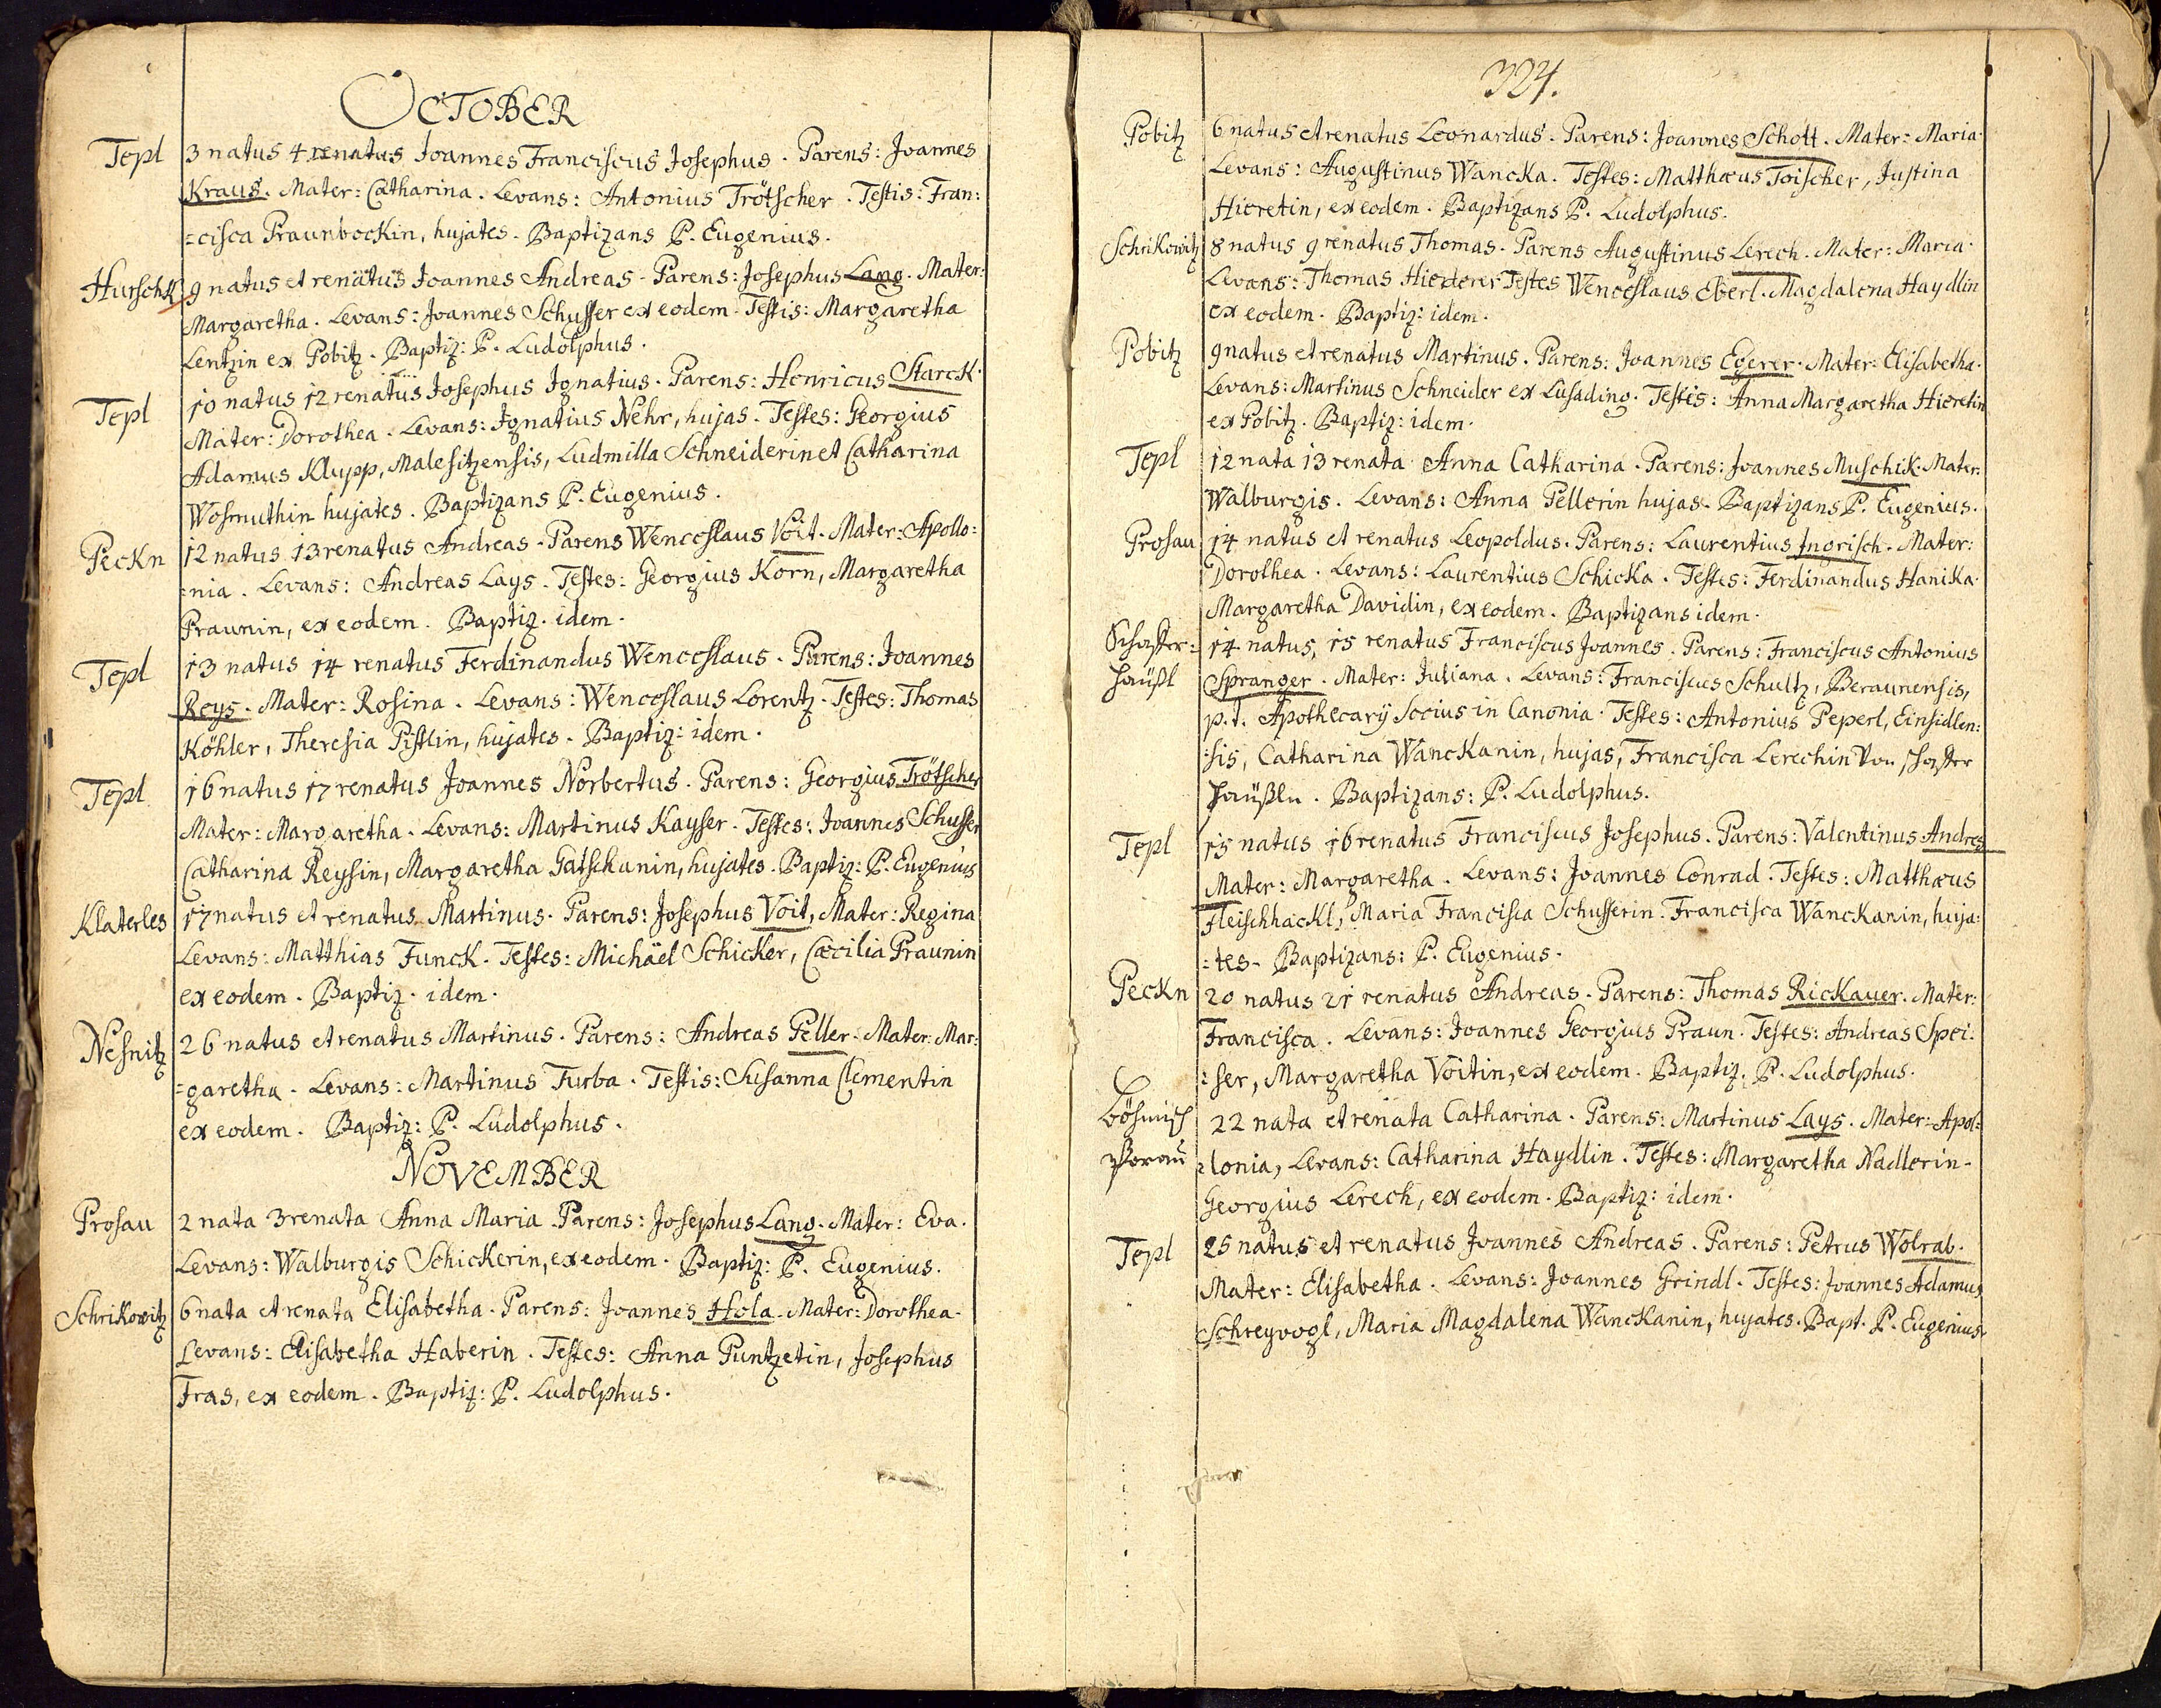 OCTOBER
Tepl 3 natus 4 renatus Joannes Franciscus Josephus. Parens: Joannes
Kraus. Mater: Catharina. Levans: Antonius Trötscher. Testis: Fran:
=cisca Praunbockin, hujates. Baptizans P. Eugenius.
Hurschk 9 natus et renatus Joannes Andreas. Parens: Josephus Lang. Mater:
Margaretha. Levans: Joannes Schusser ex eodem. Testis: Margaretha
Lentzin ex Pobitz. Baptiz: P. Ludolphus.
Tepl 10 natus 12 renatus Josephus Ignatius. Parens: Henricus Starck.
Mater: Dorothea. Levans: Ignatius Nehr, hujas. Testes: Georgius
Adamus Klupp, Malesitzensis, Ludmilla Schneiderin et Catharina
Wosmuthin hujates. Baptizans P. Eugenius.
Peckn 12 natus 13 renatus Andreas. Parens Wenceslaus Voit. Mater: Apollo:
=nia. Levans: Andreas Lays. Testes: Georgius Korn, Margaretha
Praunin, ex eodem. Baptiz. idem.
Tepl 13 natus 14 renatus Ferdinandus Wenceslaus. Parens: Joannes
Reys. Mater: Rosina. Levans: Wenceslaus Lorentz. Testes: Thomas
Köhler, Theresia Pistlin, hujates. Baptiz: idem.
Tepl 16 natus 17 renatus Joannes Norbertus. Parens: Georgius Trötscher
Mater: Margaretha. Levans: Martinus Kayser. Testes: Joannes Schusser
Catharina Reysin, Margaretha Gatschanin, hujates. Baptiz: P. Eugenius
Klaterles 17 natus et renatus Martinus. Parens: Josephus Voit, Mater: Regina
Levans: Matthias Funck. Testes: Michäel Schicker, Cæcilia Praunin
ex eodem. Baptiz. idem.
Nesnitz 26 natus et renatus Martinus. Parens: Andreas Peller. Mater: Mar:
=garetha. Levans: Martinus Turba. Testis: Susanna Clementin
ex eodem. Baptiz: P. Ludolphus.
NOVEMBER
Prosau 2 nata 3 renata Anna Maria. Parens: Josephus Lang. Mater: Eva.
Levans: Walburgis Schickerin, ex eodem. Baptiz: P. Eugenius.
Schrikowitz 6 nata et renata Elisabetha. Parens: Joannes Hola. Mater: Dorothea.
Levans: Elisabetha Haberin. Testes: Anna Puntzetin, Josephus
Fras, ex eodem. Baptiz: P. Ludolphus.
324.
Pobitz 6 natus et renatus Leonardus. Parens: Joannes Schott. Mater: Maria.
Levans: Augustinus Wancka. Testes: Matthæus Toischer, Justina
Hieretin, ex eodem. Baptizans P. Ludolphus.
Schrikowitz 8 natus 9 renatus Thomas. Parens Augustinus Lerech. Mater: Maria.
Levans: Thomas Hierderer Testes Wenceslaus Eberl. Magdalena Haydlin
ex eodem. Baptiz: idem.
Pobitz 9 natus et renatus Martinus. Parens: Joannes Egerer. Mater: Elisabetha.
Levans: Martinus Schneider ex Lusading. Testis: Anna Margaretha Hieretin
ex Pobitz. Baptiz: idem.
Tepl 12 nata 13 renata Anna Catharina. Parens: Joannes Muschik. Mater:
Walburgis. Levans: Anna Pellerin hujas. Baptizans P. Eugenius.
Prosau 14 natus et renatus Leopoldus. Parens: Laurentius Ingrisch. Mater:
Dorothea. Levans: Laurentius Schicka. Testes: Ferdinandus Hanika.
Margaretha Davidin, ex eodem. Baptizans idem.
Schaffer= 14 natus, 15 renatus Franciscus Joannes. Parens: Franciscus Antonius
häüßl Spranger. Mater: Juliana. Levans: Franciscus Schultz, Beraunensis,
p.t. Apothecarÿ Socius in Canonia. Testes: Antonius Peperl, Einsidlen:
:sis, Catharina Wanckanin, hujas, Francisca Lerechin von schaffer
häüßln. Baptizans: P. Ludolphus.
Tepl 15 natus 16 renatus Franciscus Josephus. Parens: Valentinus Andres
Mater: Margaretha. Levans: Joannes Conrad. Testes: Matthæus
Fleischhackl, Maria Francisca Schusserin. Francisca Wanckanin, huja:
=tes. Baptizans: P. Eugenius.
Peckn 20 natus 21 renatus Andreas. Parens: Thomas Rickauer. Mater:
Francisca. Levans: Joannes Georgius Praun. Testes: Andreas Spei:
:ser, Margaretha Voitin, ex eodem. Baptiz. P. Ludolphus.
Böhmisch 22 nata et renata Catharina. Parens: Martinus Lays. Mater: Apol:
=lonia, Levans: Catharina Haydlin. Testes: Margaretha Nadlerin.
Georgius Lerech, ex eodem. Baptiz: idem.
Tepl 25 natus et renatus Joannes Andreas. Parens: Petrus Wolrab.
Mater: Elisabetha. Levans: Joannes Grindl. Testes: Joannes Adamus
Schreyvogl, Maria Magdalena Wanckanin, hujates. Bapt. P. Eugenius.